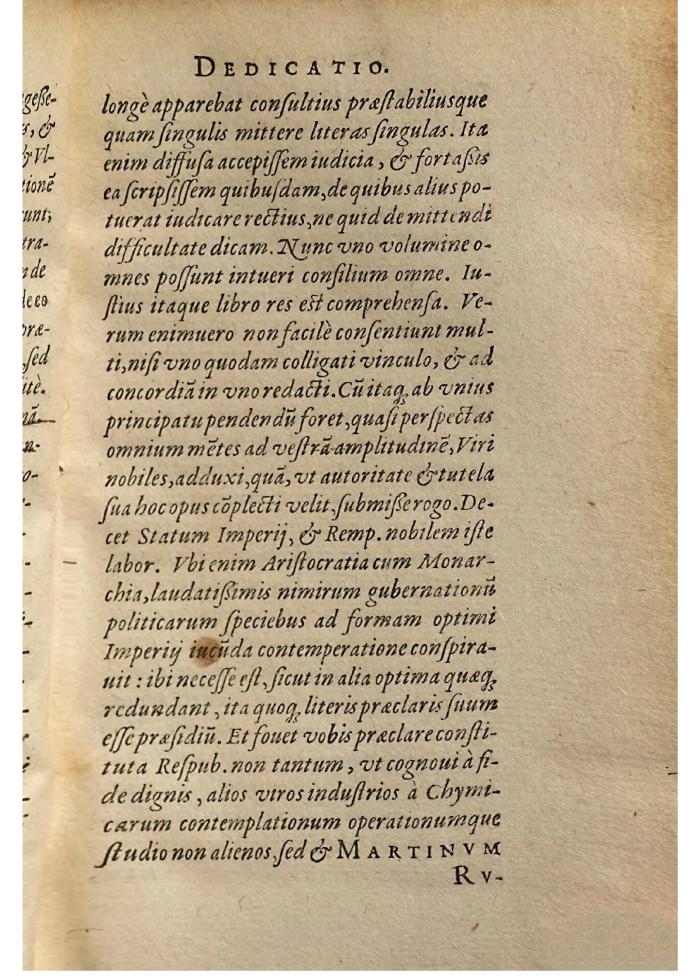 DEDICATIO.
longè apparebat conſultius præſtabiliusque
quam ſingulis mittere literas ſingulas. Ita
enim diffuſa accepiſſem iudicia, & fortaßis
ea ſcripſiſſem quibuſdam, de quibus alius po-
tuerat iudicare rectius, ne quid de mittendi
difficultate dicam. Nunc vno volumine o-
mnes poſſunt intueri conſilium omne. Iu-
ſtius itaque libro res eſt comprehenſa. Ve-
rum enimuero non facilè conſentiunt mul-
ti, niſi vno quodam colligati vinculo, & ad
concordiā in vno redacti. Cū itaq; ab vnius
principatu pendendū foret, quaſi perſpectas
omnium mētes ad veſtrā amplitudinē, Viri
nobiles, adduxi, quā, vt autoritate & tutela
ſua hoc opus cōplecti velit, ſubmiße rogo. De-
cet Statum Imperij, & Remp. nobilem iſte
labor. Vbi enim Ariſtocratia cum Monar-
chia, laudatißimis nimirum gubernationū
politicarum ſpeciebus ad formam optimi
Imperij iucūda contemperatione conſpira-
uit : ibi neceſſe eſt, ſicut in alia optima quæq;
redundant, ita quoq; literis præclaris ſuum
eſſe præſidiū. Et fouet vobis præclare conſti-
tuta Reſpub. non tantum, vt cognoui à fi-
de dignis, alios viros induſtrios à Chymi-
carum contemplationum operationumque
ſtudio non alienos, ſed & MARTINVM
RV-
geße-
s, &
& Vl-
tionē
unt;
tra-
n de
de eo
præ-
ſed
itè.
nā
n-
o-